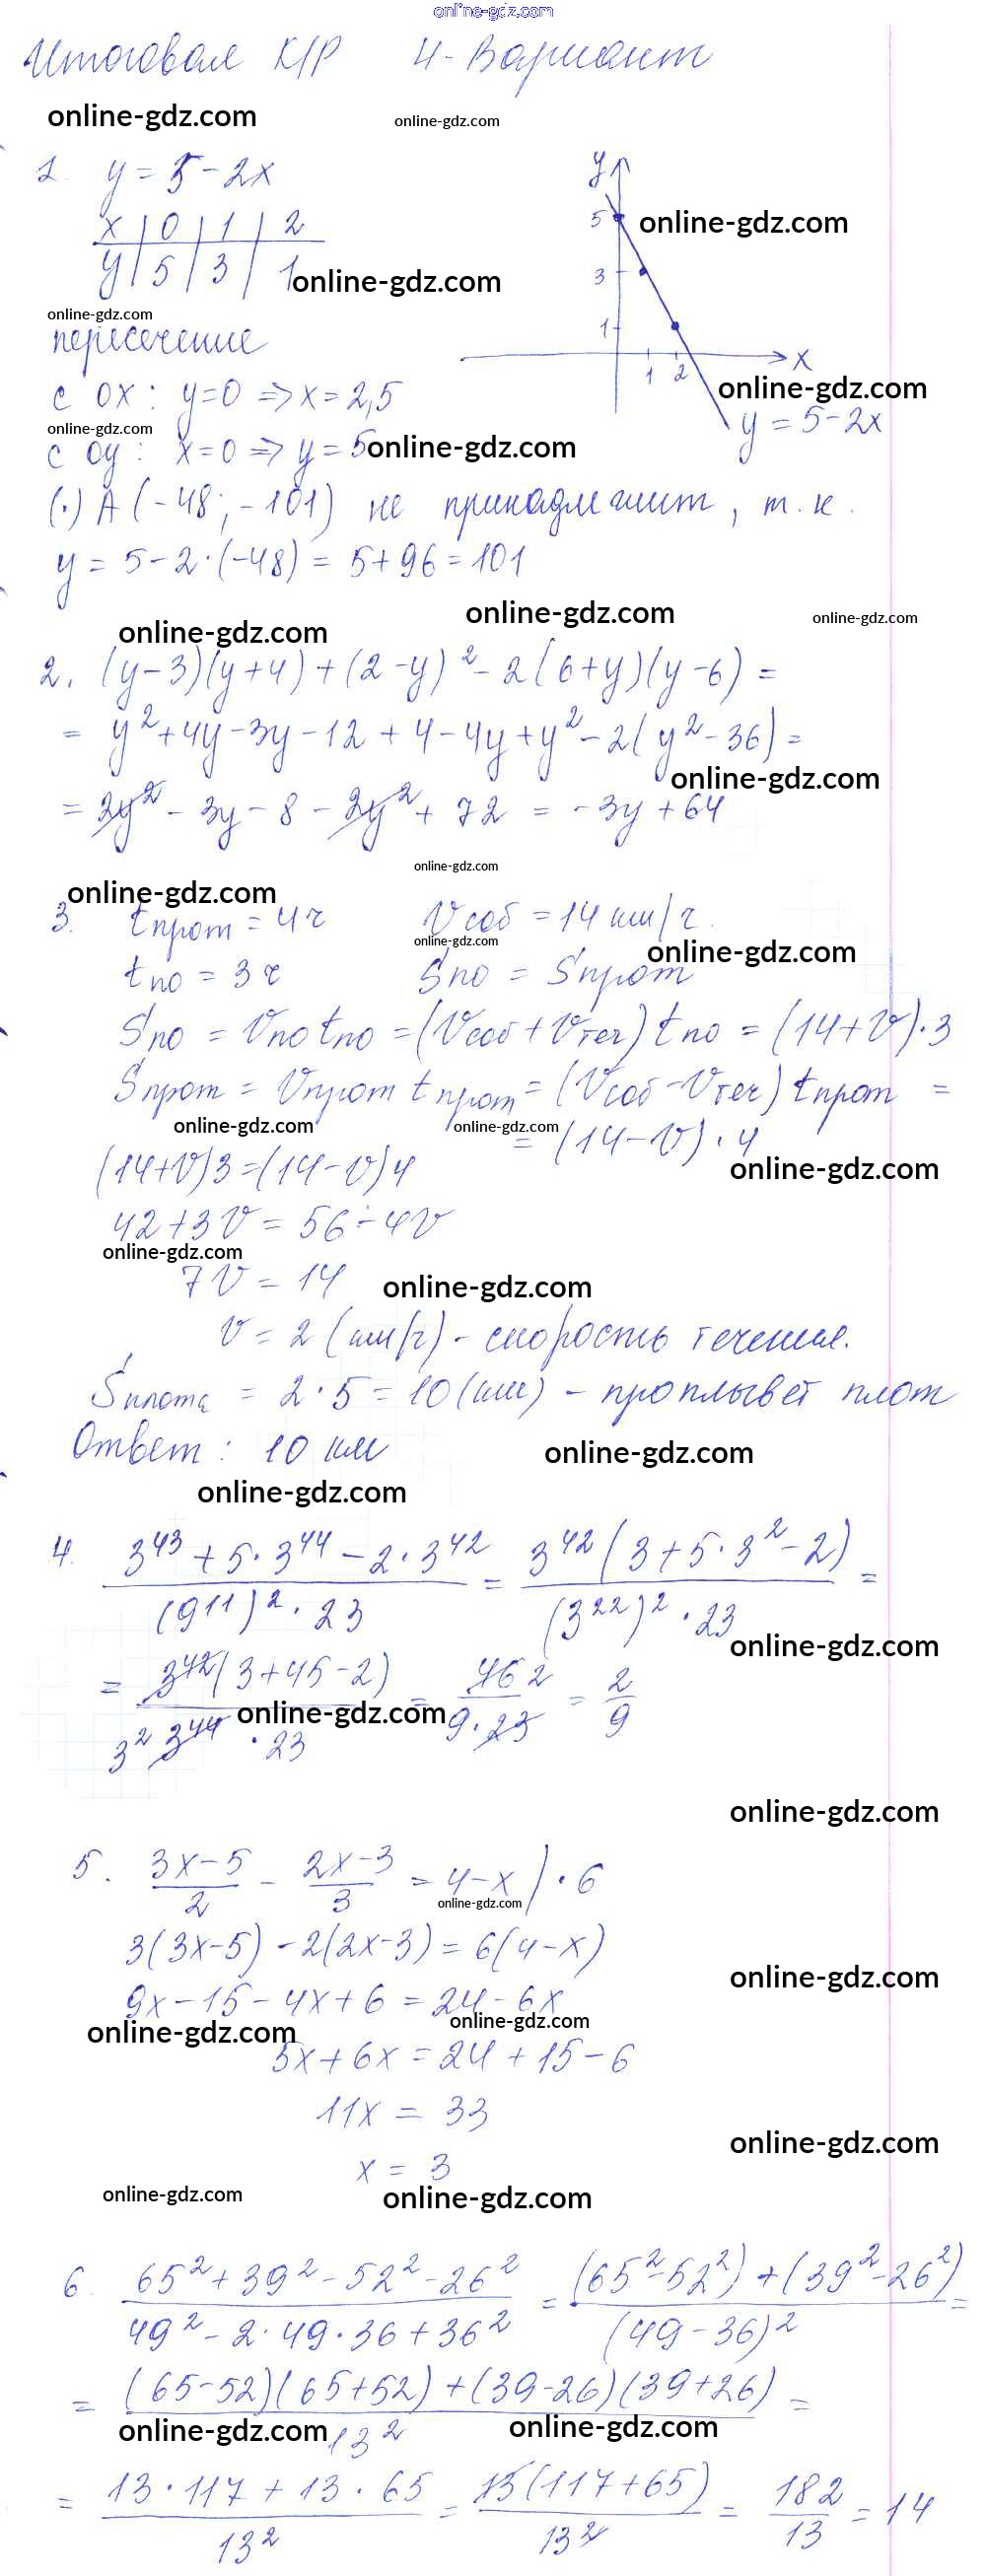 online-gdz.com
Итоговая К/Р 4-Вариант
online-gdz.com online-gdz.com
1. y = 5 - 2x
x | 0 | 1 | 2
y | 5 | 3 | 1
online-gdz.com
y
5
online-gdz.com
3
1
1 2
x
online-gdz.com
y = 5 - 2x
online-gdz.com
пересечение
с ox: y=0 => x = 2,5
online-gdz.com
с oy: x=0 => y = 5
online-gdz.com
(·) A (-48; -101) не принадлежит, т.к.
y = 5 - 2·(-48) = 5 + 96 = 101
online-gdz.com online-gdz.com online-gdz.com
2. (y-3)(y+4) + (2-y)² - 2(6+y)(y-6) =
= y² + 4y - 3y - 12 + 4 - 4y + y² - 2(y² - 36) =
online-gdz.com
= 2y² - 3y - 8 - 2y² + 72 = -3y + 64
online-gdz.com
online-gdz.com
3. tпрот = 4 ч Vсоб = 14 км/ч.
online-gdz.com online-gdz.com
tпо = 3 ч Sпо = Sпрот
Sпо = Vпо tпо = (Vсоб + Vтеч) tпо = (14+V)·3
Sпрот = Vпрот tпрот = (Vсоб - Vтеч) tпрот =
online-gdz.com online-gdz.com
= (14-V)·4
online-gdz.com
(14+V)3 = (14-V)4
42 + 3V = 56 - 4V
online-gdz.com
7V = 14
online-gdz.com
V = 2 (км/ч) - скорость течения.
Sплота = 2·5 = 10 (км) - проплывет плот
Ответ: 10 км
online-gdz.com
online-gdz.com
4. (3⁴³ + 5·3⁴⁴ - 2·3⁴²)/((9¹¹)²·23) = 3⁴²(3 + 5·3² - 2)/((3²²)²·23) =
online-gdz.com
= 3⁴²(3+45-2)/(3² 3⁴⁴·23) = 46 2/(9·23) = 2/9
online-gdz.com
online-gdz.com
5. (3x-5)/2 - (2x-3)/3 = 4-x )·6
online-gdz.com
3(3x-5) - 2(2x-3) = 6(4-x)
online-gdz.com
9x - 15 - 4x + 6 = 24 - 6x
online-gdz.com online-gdz.com
5x + 6x = 24 + 15 - 6
11x = 33
online-gdz.com
x = 3
online-gdz.com online-gdz.com
6. (65² + 39² - 52² - 26²)/(49² - 2·49·36 + 36²) = ((65² - 52²) + (39² - 26²))/(49-36)² =
= ((65-52)(65+52) + (39-26)(39+26))/13² =
online-gdz.com online-gdz.com
= (13·117 + 13·65)/13² = 13(117+65)/13² = 182/13 = 14